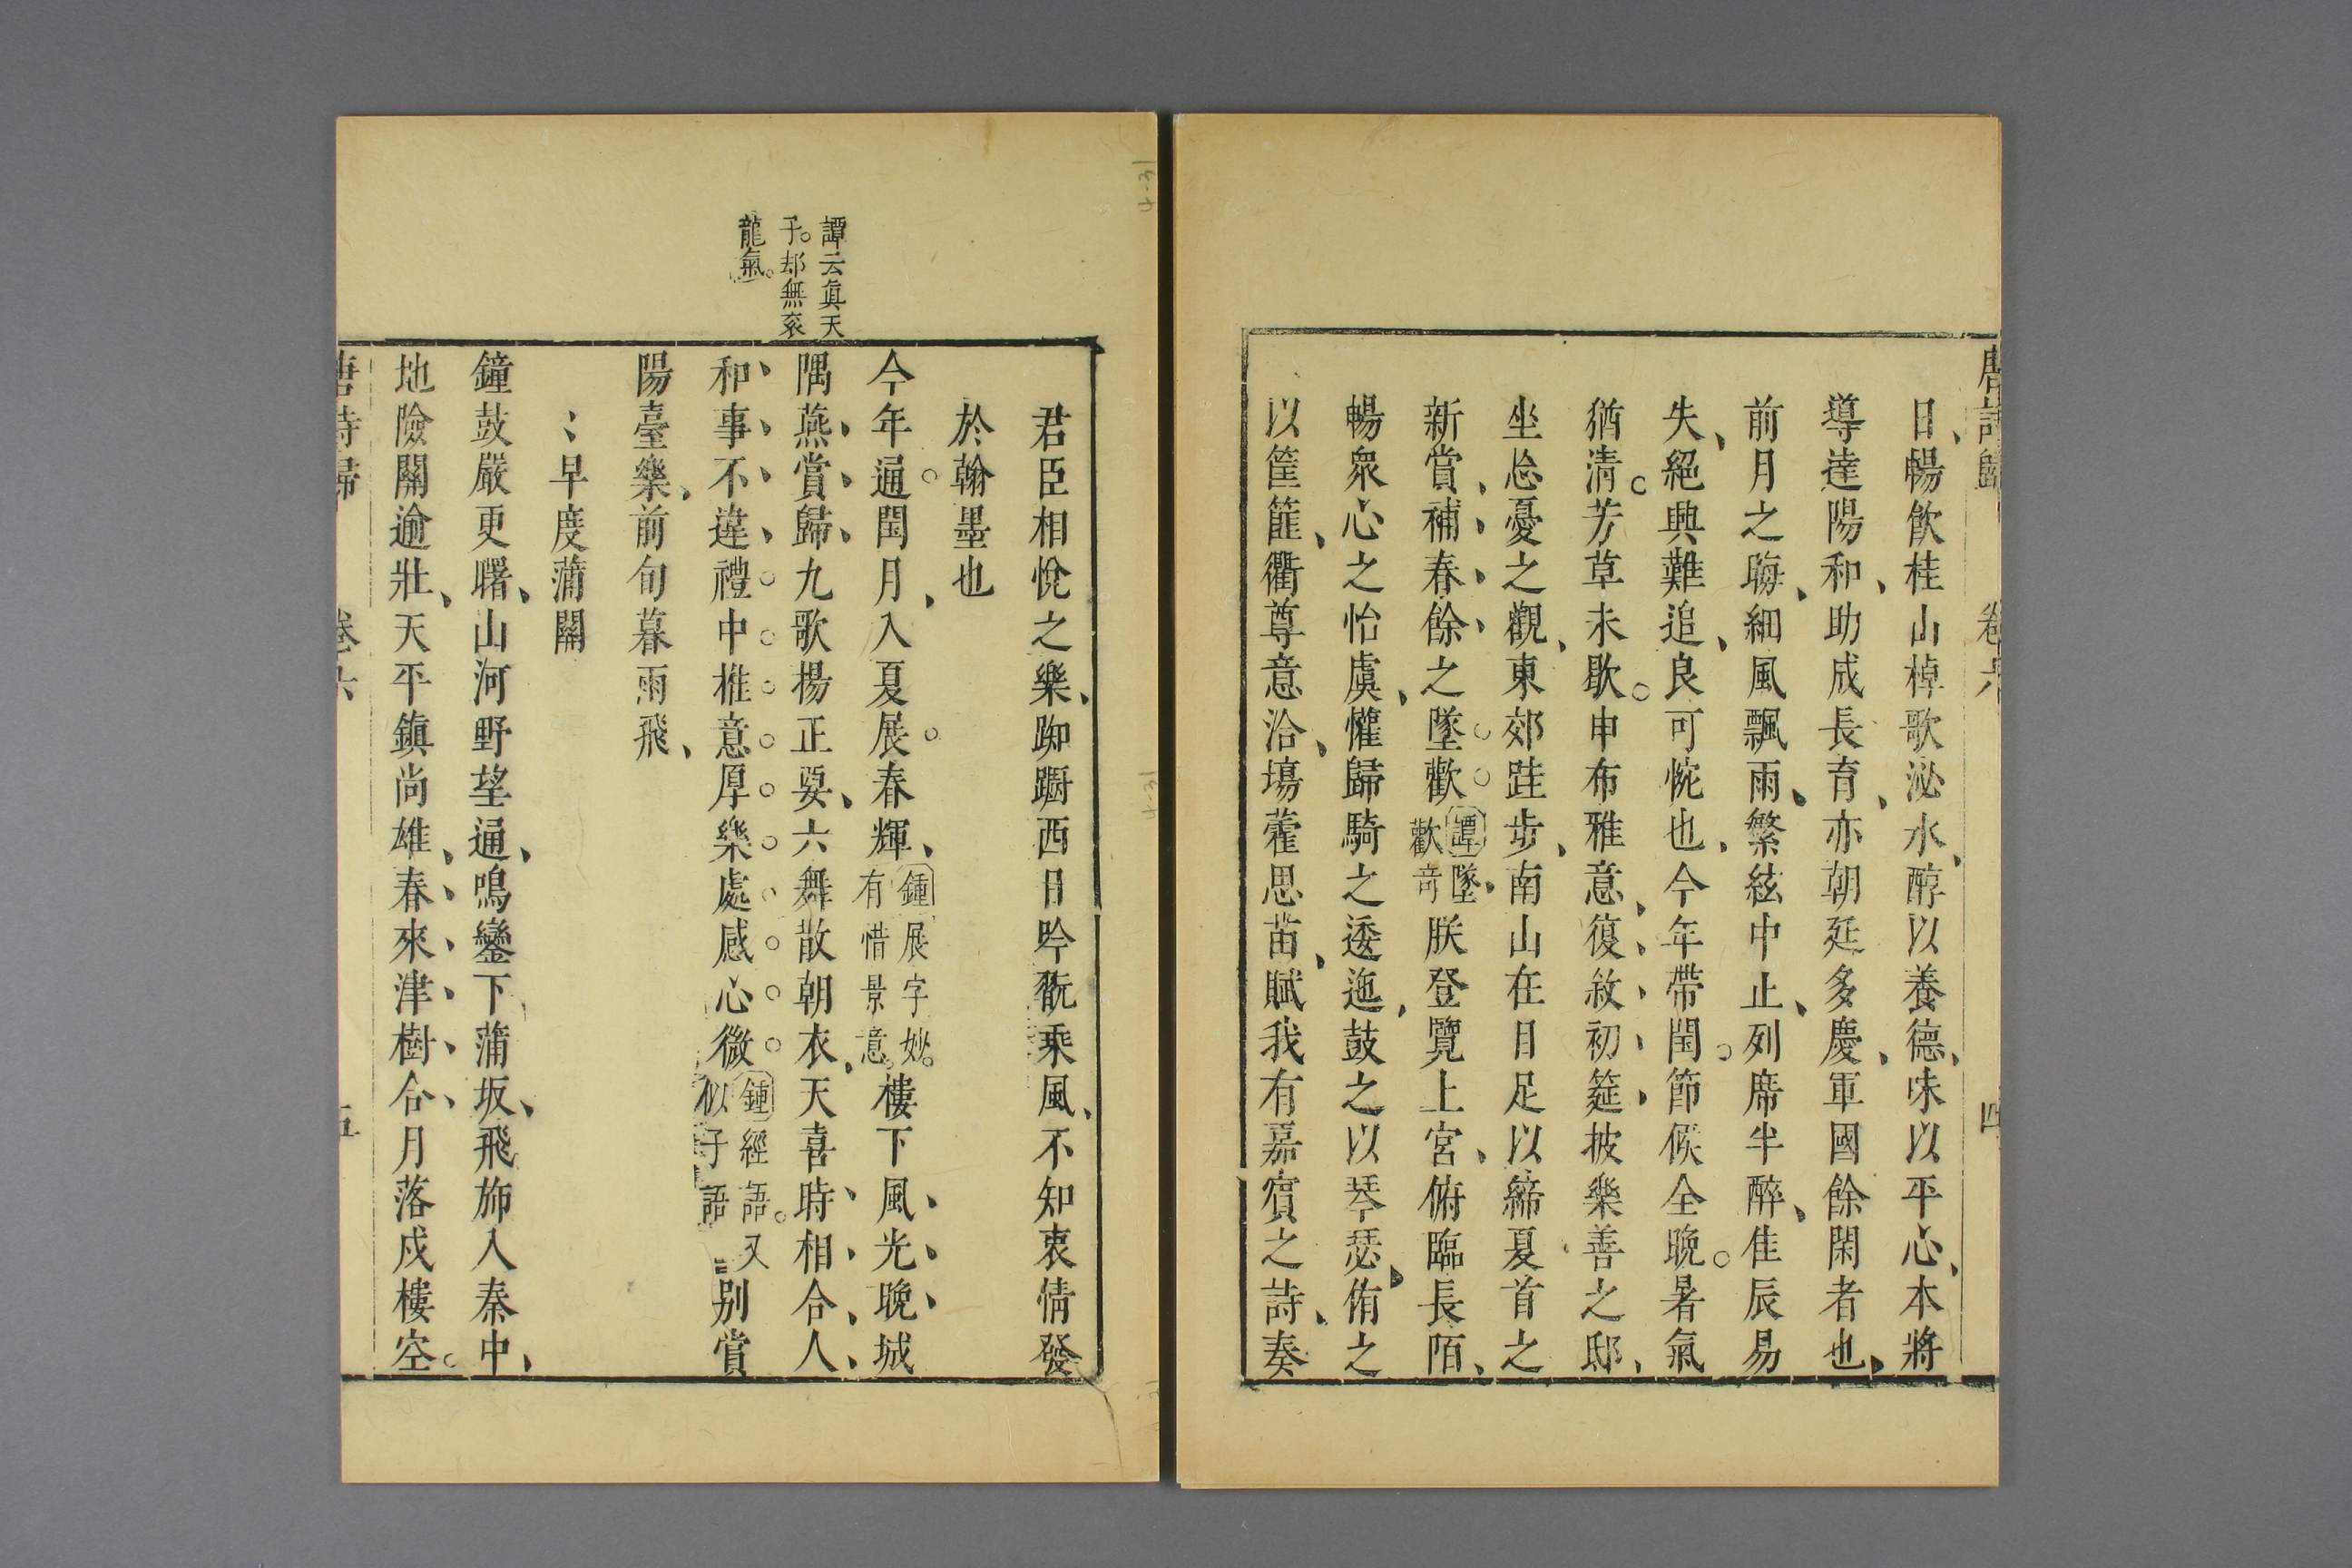 唐詩歸 卷六 四
日暢飲桂山棹歌泌水醇以養德味以平心本將
導達陽和助成長育亦朝廷多慶軍國餘閑者也
前月之晦細風飄雨繁絃中止列席半醉佳辰易
失絕興難追良可惋也今年帶閏節候全晚暑氣
猶清芳草未歇申布雅意復敘初筵披樂善之邸
坐忩憂之觀東郊跬步南山在目足以締夏首之
新賞補春餘之墜歡
譚墜
歡奇
朕登覽上宮俯臨長陌
暢眾心之怡虞懽歸騎之逶迤鼓之以琴瑟侑之
以筐篚衢尊意洽場藿思苗賦我有嘉賓之詩奏
君臣相悅之樂踟躕西日吟翫乘風不知衷情發
於翰墨也
譚云眞天
子却無衮
龍氣
今年通閏月入夏展春輝
鍾展字妙
有惜景意
樓下風光晚城
隅燕賞歸九歌揚正要六舞散朝衣天喜時相合人
和事不違禮中推意厚樂處感心微
鍾經語又
似子語
別賞
陽臺樂前旬暮雨飛
早度蒲關
鐘鼓嚴更曙山河野望通鳴鑾下蒲坂飛斾入秦中
地險關逾壯天平鎮尚雄春來津樹合月落戍樓空
唐詩歸 卷六 五